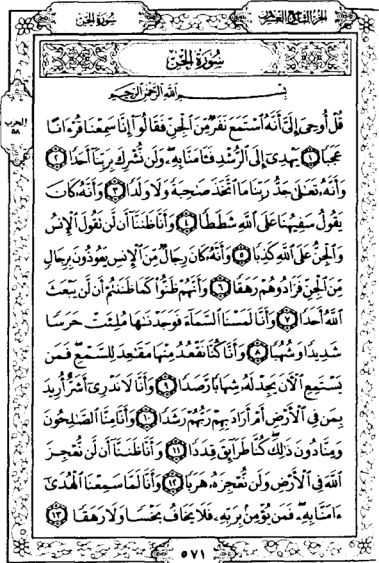 الجزء التاسع والعشرون
سورة الجن
الحزب
٥٨
سُورَةُ الجِنّ
بِسْمِ ٱللَّهِ ٱلرَّحْمَٰنِ ٱلرَّحِيمِ
قُلْ أُوحِىَ إِلَىَّ أَنَّهُ ٱسْتَمَعَ نَفَرٌ مِّنَ ٱلْجِنِّ فَقَالُوٓا۟ إِنَّا سَمِعْنَا قُرْءَانًا
عَجَبًا ١ يَهْدِىٓ إِلَى ٱلرُّشْدِ فَـَٔامَنَّا بِهِۦ وَلَن نُّشْرِكَ بِرَبِّنَآ أَحَدًا ٢
وَأَنَّهُۥ تَعَٰلَىٰ جَدُّ رَبِّنَا مَا ٱتَّخَذَ صَٰحِبَةً وَلَا وَلَدًا ٣ وَأَنَّهُۥ كَانَ
يَقُولُ سَفِيهُنَا عَلَى ٱللَّهِ شَطَطًا ٤ وَأَنَّا ظَنَنَّآ أَن لَّن تَقُولَ ٱلْإِنسُ
وَٱلْجِنُّ عَلَى ٱللَّهِ كَذِبًا ٥ وَأَنَّهُۥ كَانَ رِجَالٌ مِّنَ ٱلْإِنسِ يَعُوذُونَ بِرِجَالٍ
مِّنَ ٱلْجِنِّ فَزَادُوهُمْ رَهَقًا ٦ وَأَنَّهُمْ ظَنُّوا۟ كَمَا ظَنَنتُمْ أَن لَّن يَبْعَثَ
ٱللَّهُ أَحَدًا ٧ وَأَنَّا لَمَسْنَا ٱلسَّمَآءَ فَوَجَدْنَٰهَا مُلِئَتْ حَرَسًا
شَدِيدًا وَشُهُبًا ٨ وَأَنَّا كُنَّا نَقْعُدُ مِنْهَا مَقَٰعِدَ لِلسَّمْعِ فَمَن
يَسْتَمِعِ ٱلْـَٔانَ يَجِدْ لَهُۥ شِهَابًا رَّصَدًا ٩ وَأَنَّا لَا نَدْرِىٓ أَشَرٌّ أُرِيدَ
بِمَن فِى ٱلْأَرْضِ أَمْ أَرَادَ بِهِمْ رَبُّهُمْ رَشَدًا ١٠ وَأَنَّا مِنَّا ٱلصَّٰلِحُونَ
وَمِنَّا دُونَ ذَٰلِكَ كُنَّا طَرَآئِقَ قِدَدًا ١١ وَأَنَّا ظَنَنَّآ أَن لَّن نُّعْجِزَ
ٱللَّهَ فِى ٱلْأَرْضِ وَلَن نُّعْجِزَهُۥ هَرَبًا ١٢ وَأَنَّا لَمَّا سَمِعْنَا ٱلْهُدَىٰٓ
ءَامَنَّا بِهِۦ فَمَن يُؤْمِنۢ بِرَبِّهِۦ فَلَا يَخَافُ بَخْسًا وَلَا رَهَقًا ١٣
٥٧١